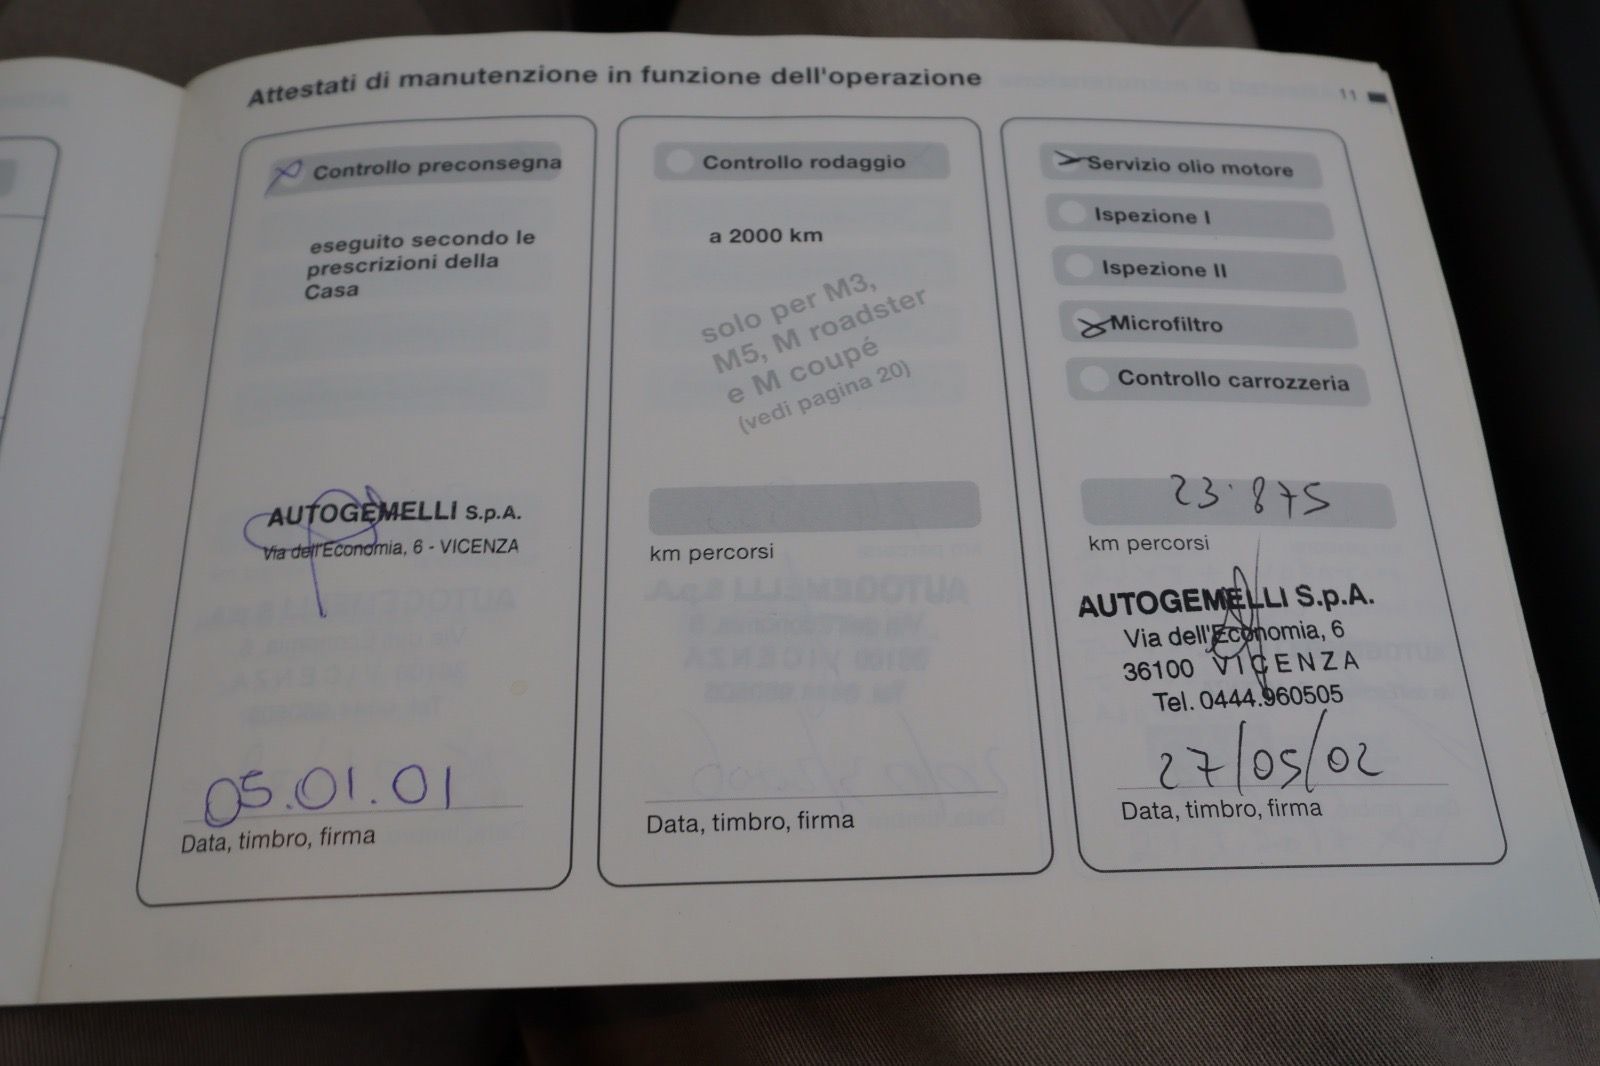 Attestati di manutenzione in funzione dell'operazione
11
Controllo preconsegna
eseguito secondo le
prescrizioni della
Casa
AUTOGEMELLI S.p.A.
Via dell'Economia, 6 - VICENZA
05.01.01
Data, timbro, firma
Controllo rodaggio
a 2000 km
solo per M3,
M5, M roadster
e M coupé
(vedi pagina 20)
km percorsi
Data, timbro, firma
Servizio olio motore
Ispezione I
Ispezione II
Microfiltro
Controllo carrozzeria
23.875
km percorsi
AUTOGEMELLI S.p.A.
Via dell'Economia, 6
36100 VICENZA
Tel. 0444.960505
27/05/02
Data, timbro, firma